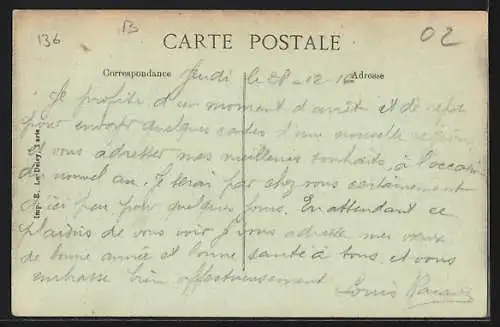 136
B
CARTE POSTALE
02
Correspondance
Adresse
Jeudi le 28-12-16
Je profite d'un moment d'arrêt et de repos
pour envoyer quelques cartes d'une nouvelle région
et vous adresser mes meilleurs souhaits à l'occasion
du nouvel an. Je serai par chez vous certainement
d'ici peu pour quelques jours. En attendant ce
plaisir de vous voir je vous adresse mes vœux
de bonne année et bonne santé à tous, et vous
embrasse bien affectueusement
Louis
Imp. E. Le Deley, Paris